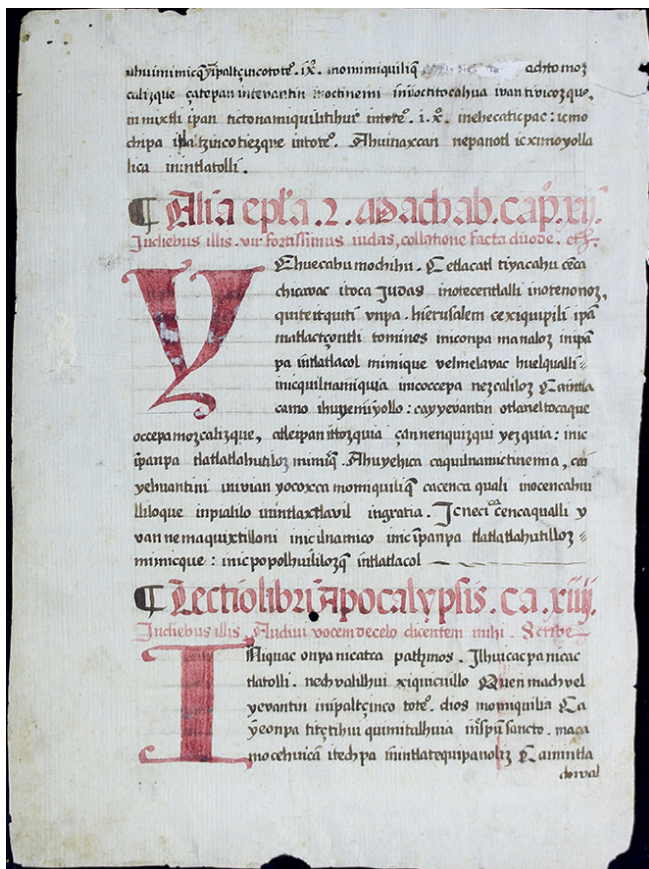 ahuimimicq̃yĩpaltçincototẽ. ix̃. inomimiquiliq̃ achtomoz
calizque çatepan intevantin inoctinemi iniioctitocahua ivan tivicozque,
in mixtli ipan tictonamiquilitihui intotẽ. i.x̃. inehecaticpac: icmo
chipa ipaltzincotiezque intotẽ. Ahuinaxcan nepanotl icximoyolla
lica inintlatolli.
¶ Alia epl̃a .2. Machab. cap̃. xij.
Indiebus illis. vir fortissimus iudas, collatione facta duode.
YEhuecahu mochihu. Cetlacatl tiyacahu cẽca
chicavac itoca Judas inotecentlalli inotenonoz,
quiteitquiti vnpa. hierusalem cexiquipili ipã
matlactçontli tomines inic onpa manaloz inipã
pa intlatlacol mimique velmelavac huelqualli
inicquilnamiquia inicoccepa nezcaliloz Caintla
camo ihuiyeniyollo: cayyevantin otlaneltocaque
occepamozcalizque, atleipanittozquia çannenquizqui yezquia: inic
ipanpa tlatlatlahutiloz mimiq̃. Ahuyehica caquilnamictinemia, cai
yehuantini inivian yocoxca momiquiliq̃ cacenca quali inocencahu
lliloque inpialilo inintlaxtlavil ingratia. Jcneci ca cencaqualli y
van nemaquixtilloni inicilnamico inicipanpa tlatlatlahutilloz
mimicque: inicpopolhuililozq̃ intlatlacol
¶ Lectio libri Apocalypsis. ca. xiiij.
Indiebus illis Audiui vocem decelo dicentem mihi. Scribe
INiquac onpanicatca pathmos. Ilhuicacpa nicac
tlatolli. nechvalilhui xiquicuillo Quen mach vel
yevantin inipaltçinco totẽ. dios momiquilia Ca
yeonpa titçtihui quimitalhuia inspũ sancto. maça
mocehuicã itechpa inintlatequipanoliz Cainintla